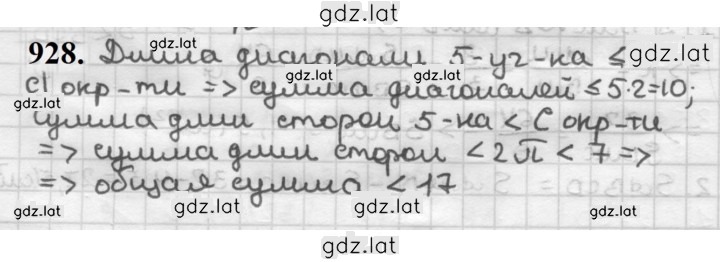 gdz.lat
928. Длина диагонали 5-уг-ка ≤
gdz.lat gdz.lat
gdz.lat gdz.lat
d окр-ти => сумма диагоналей ≤ 5·2=10;
сумма длин сторон 5-ка < C окр-ти
=> сумма длин сторон < 2π < 7 =>
=> общая сумма < 17
gdz.lat gdz.lat gdz.lat gdz.lat
gdz.lat